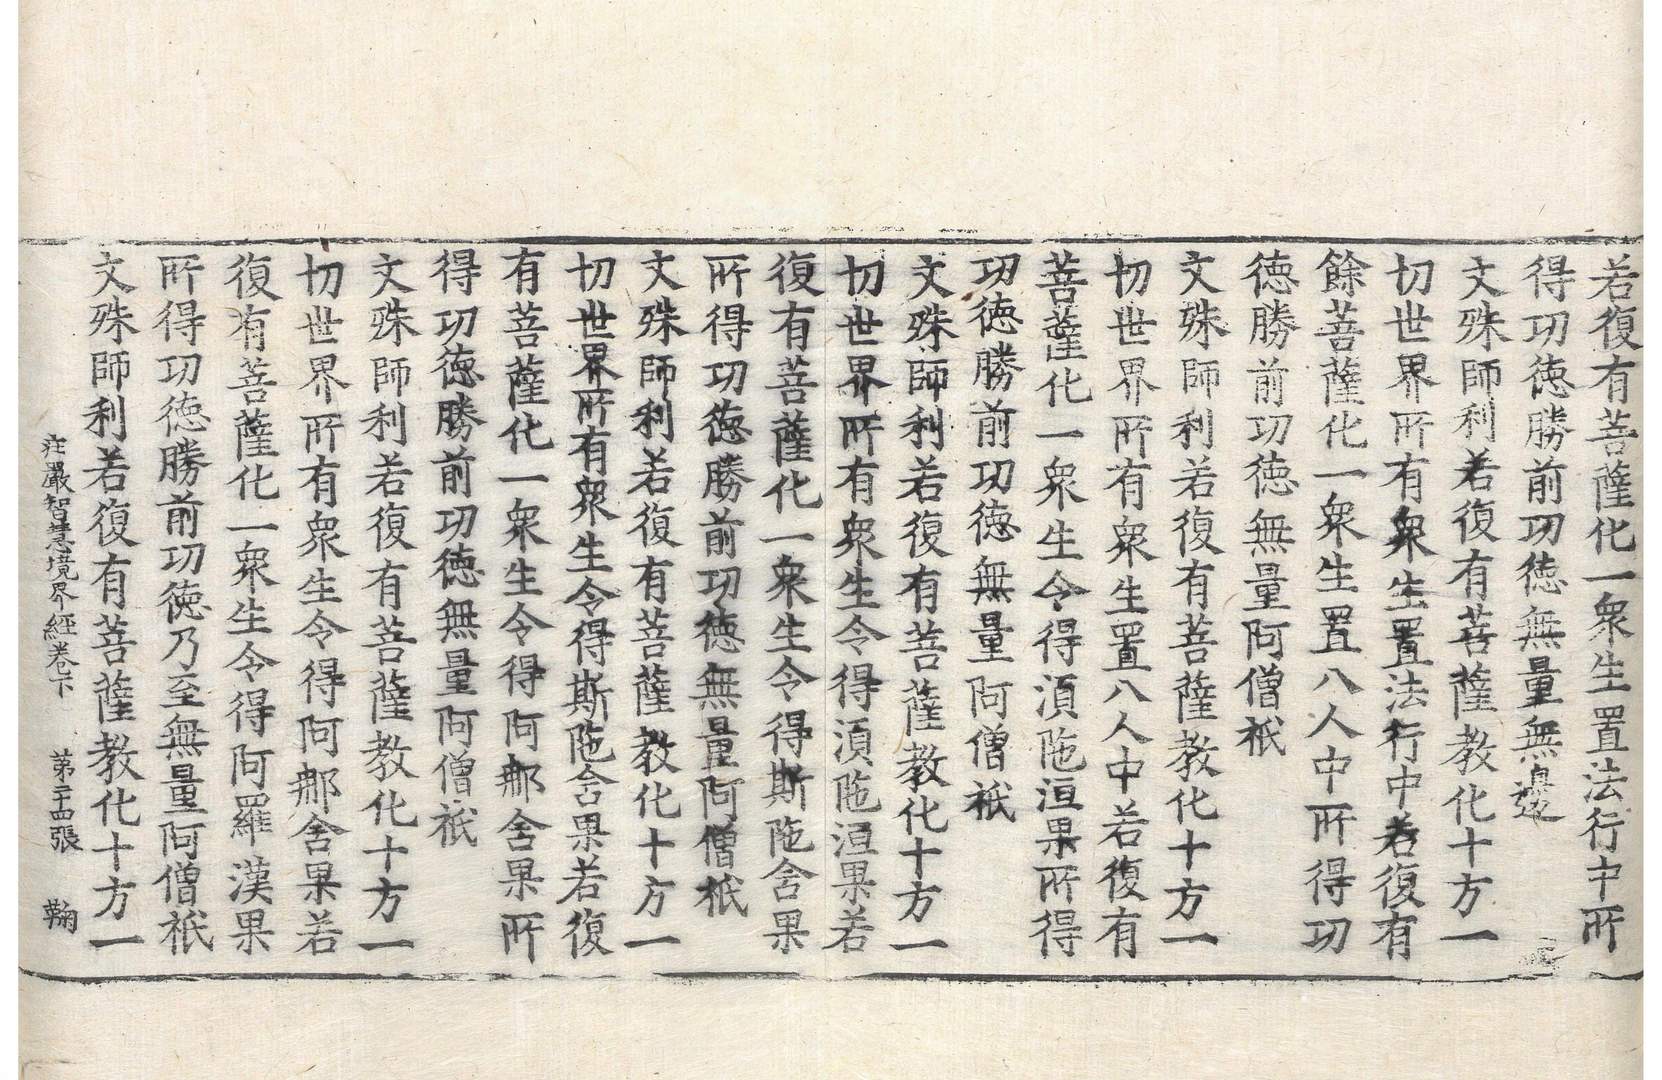 若復有菩薩化一衆生置法行中所
得功徳勝前功徳無量無邊
文殊師利若復有菩薩教化十方一
切世界所有衆生置法行中若復有
餘菩薩化一衆生置八人中所得功
徳勝前功徳無量阿僧祇
文殊師利若復有菩薩教化十方一
切世界所有衆生置八人中若復有
菩薩化一衆生令得湏陁洹果所得
功徳勝前功徳無量阿僧祇
文殊師利若復有菩薩教化十方一
切世界所有衆生令得湏陁洹果若
復有菩薩化一衆生令得斯陁含果
所得功徳勝前功徳無量阿僧祇
文殊師利若復有菩薩教化十方一
切世界所有衆生令得斯陁含果若復
有菩薩化一衆生令得阿那含果所
得功徳勝前功徳無量阿僧祇
文殊師利若復有菩薩教化十方一
切世界所有衆生令得阿那含果若
復有菩薩化一衆生令得阿羅漢果
所得功徳勝前功徳乃至無量阿僧祇
文殊師利若復有菩薩教化十方一
庄嚴智慧境界經卷下 第二十四張 鞠